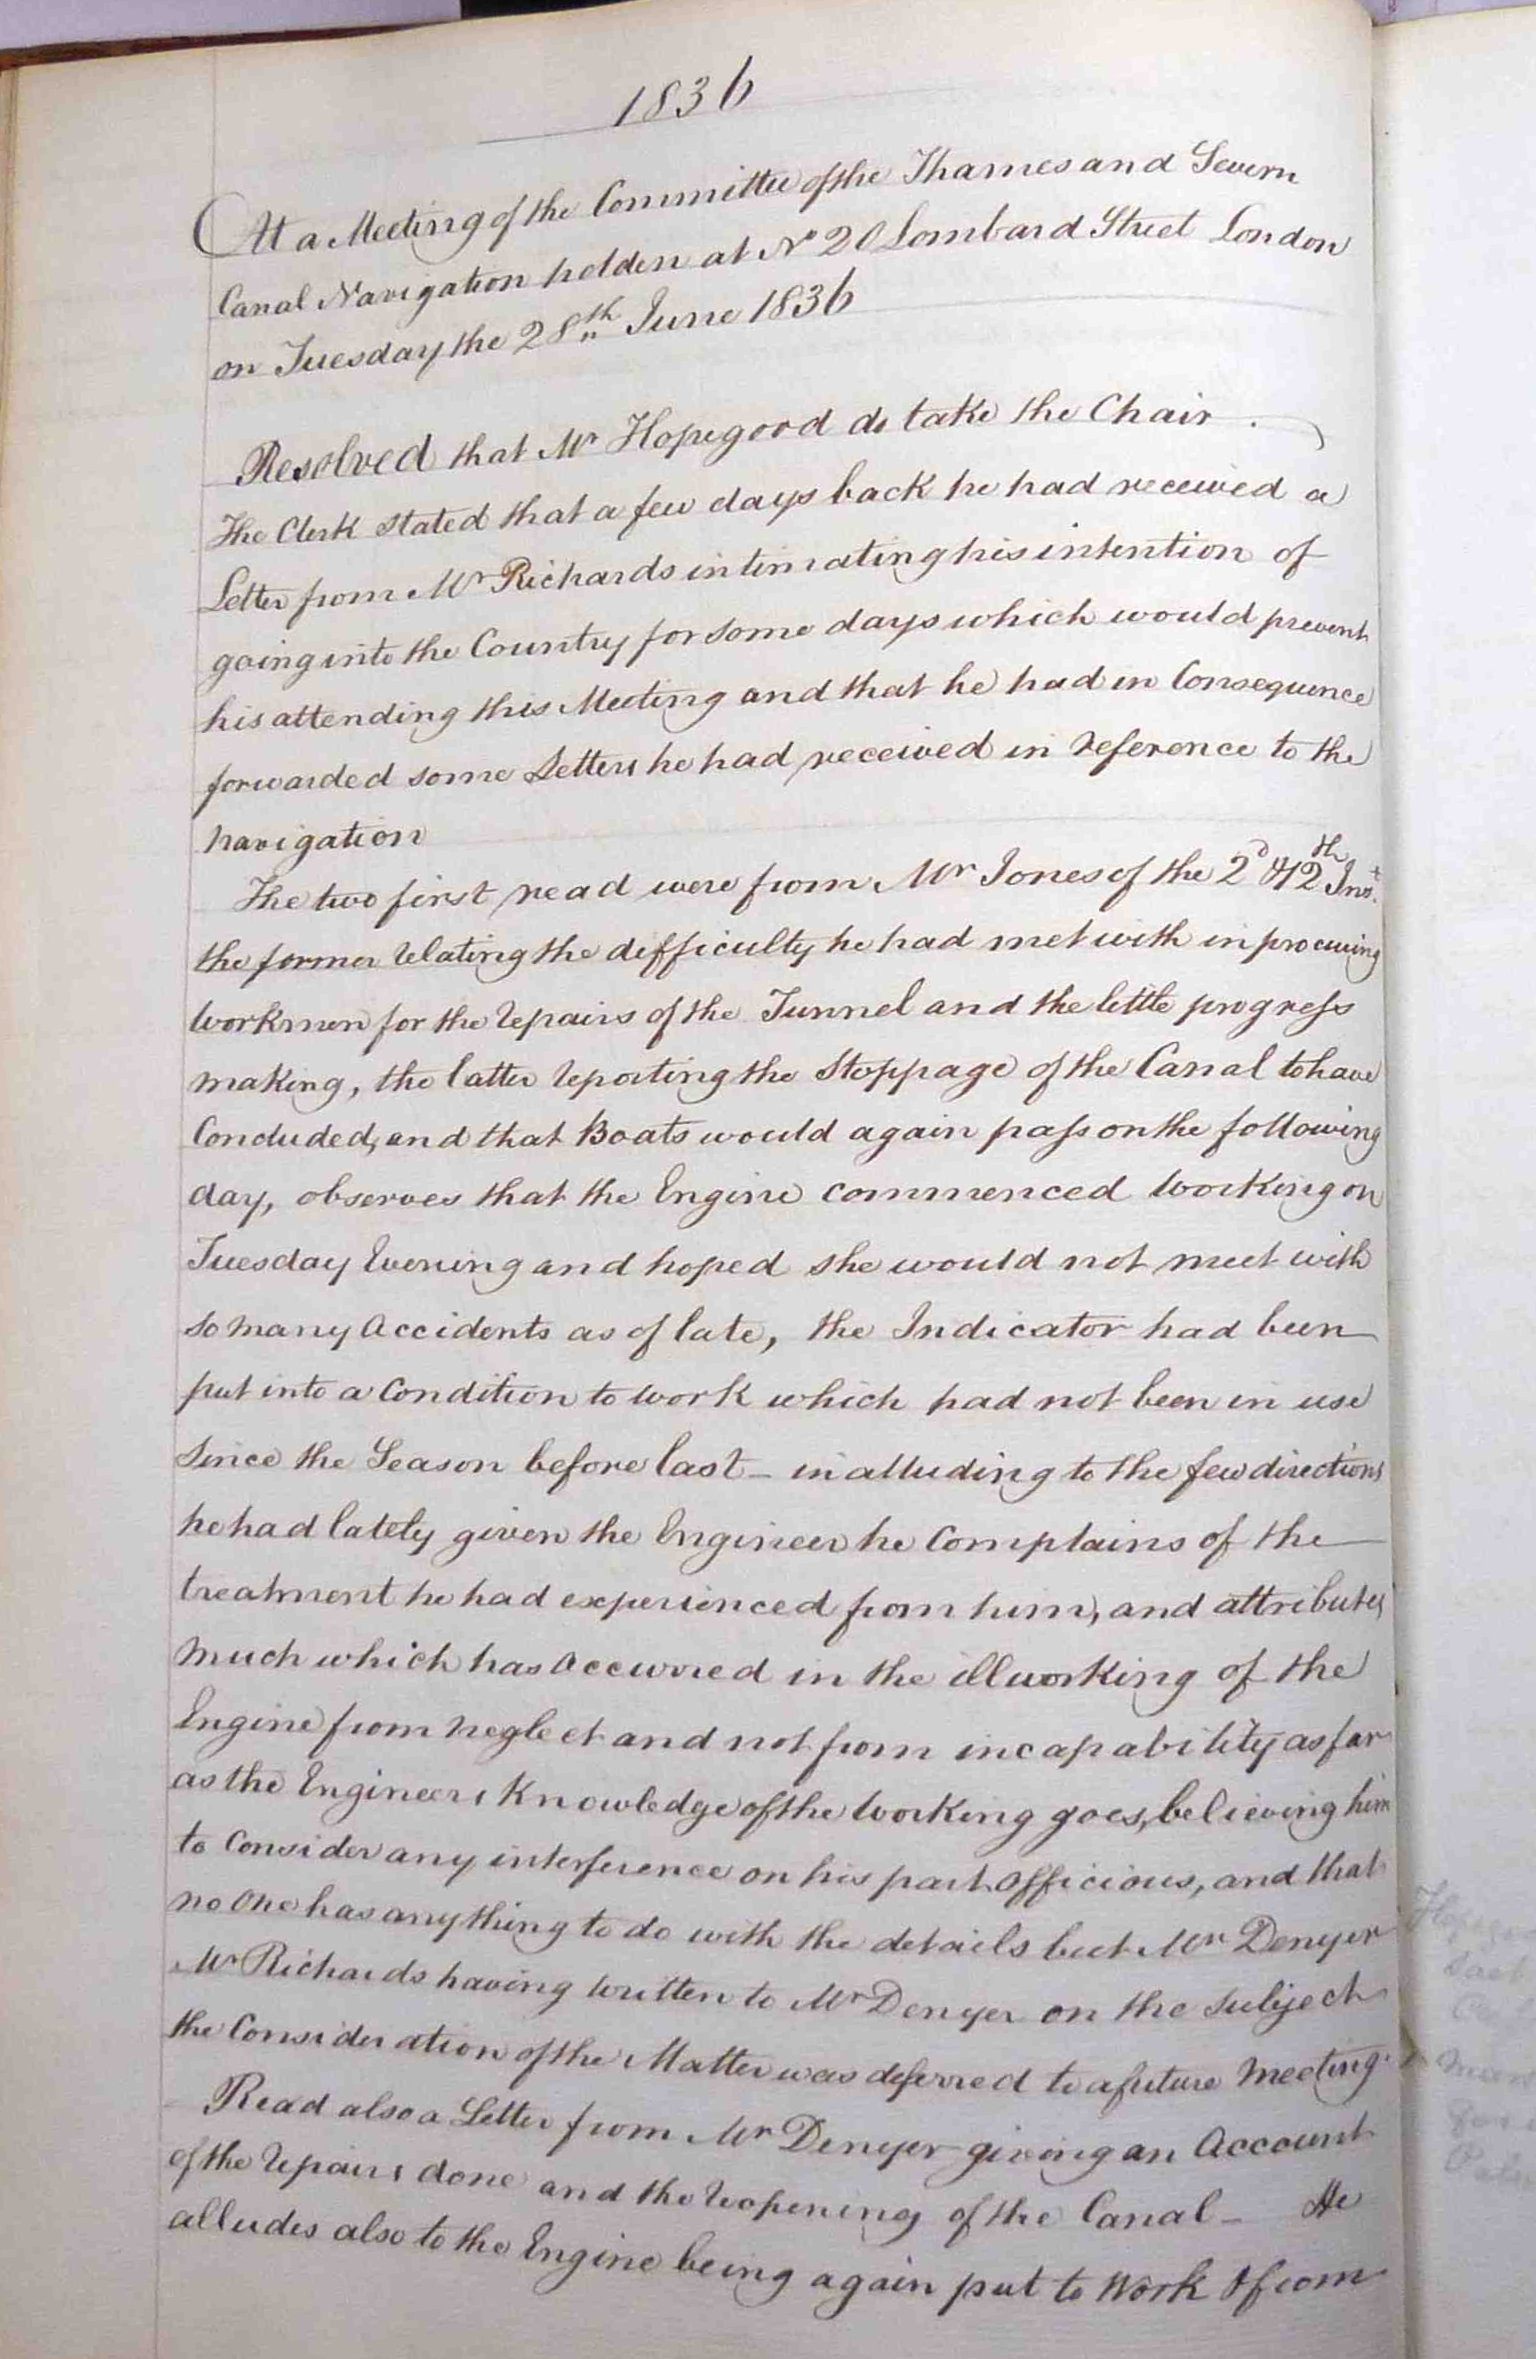 1836
At a Meeting of the Committee of the Thames and Severn
Canal Navigation holden at No 20 Lombard Street London
on Tuesday the 28th June 1836
Resolved that Mr Hopegood do take the Chair.
The Clerk stated that a few days back he had received a
Letter from Mr Richards intimating his intention of
going into the Country for some days which would prevent
his attending this Meeting and that he had in Consequence
forwarded some Letters he had received in reference to the
navigation
The two first read were from Mr Jones of the 2d & 12th Inst.
the former relating the difficulty he had met with in procuring
workmen for the repairs of the Tunnel and the little progress
making, the latter reporting the Stoppage of the Canal to have
Concluded, and that Boats would again pass on the following
day, observes that the Engine commenced working on
Tuesday Evening and hoped she would not meet with
so many Accidents as of late, the Indicator had been
put into a Condition to work which had not been in use
since the Season before last - in alluding to the few directions
he had lately given the Engineer he Complains of the
treatment he had experienced from him, and attributes
much which has occurred in the ill working of the
Engine from neglect and not from incapability as far
as the Engineers Knowledge of the working goes, believing him
to Consider any interference on his part officious, and that
no one has anything to do with the details but Mr Denyer
Mr Richards having written to Mr Denyer on the subject
the Consideration of the Matter was deferred to a future Meeting.
Read also a Letter from Mr Denyer giving an Account
of the repairs done and the reopening of the Canal - He
alludes also to the Engine being again put to Work & from